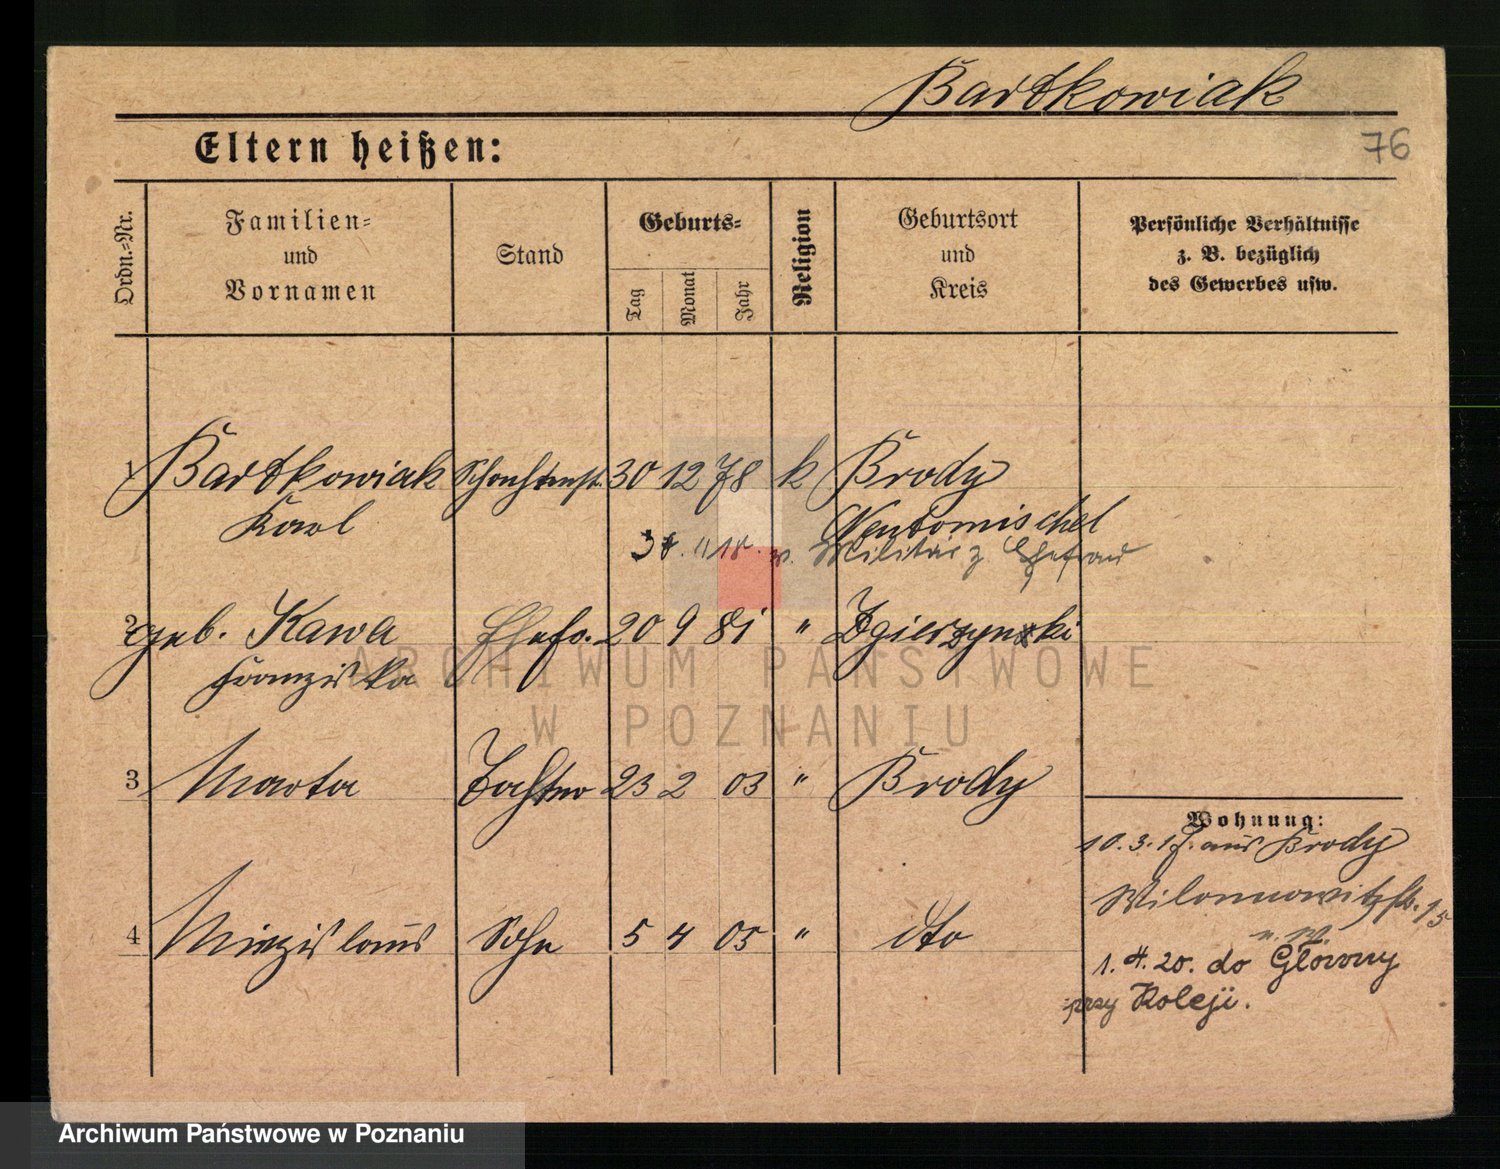 Bartkowiak
76
Eltern heißen:
Ordn.-Nr.
Familien-
und
Vornamen
Stand
Geburts-
Tag
Monat
Jahr
Religion
Geburtsort
und
Kreis
Persönliche Verhältnisse
z. B. bezüglich
des Gewerbes usw.
1 Bartkowiak 30 12 78 k Brody
Karl Neutomischel
v. Militär z Ehefrau
2 geb. Kawa Ehefr. 20 9 81 " Zgierzynski
Franziska
3 Marta Tochter 23 2 03 " Brody
Wohnung:
10. 3. 17. aus Brody
4 Miezislaus Sohn 5 4 05 " dto
1. 4. 20. do Główny
przy Koleji.
ARCHIWUM PAŃSTWOWE
W POZNANIU
Archiwum Państwowe w Poznaniu